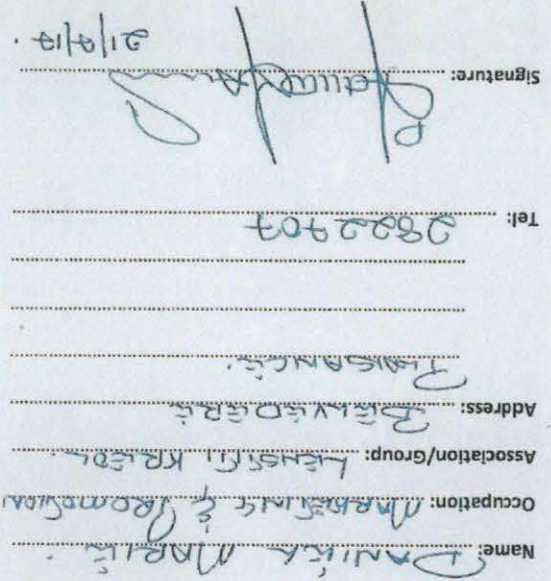 Name: DANIELA MARIE
Occupation: MARKETING & PROMOTION
Association/Group: LENSTTI KREOL.
Address: BELVEDERE
PLAISANCE.
Tel: 2822707
Signature:
21/7/17.